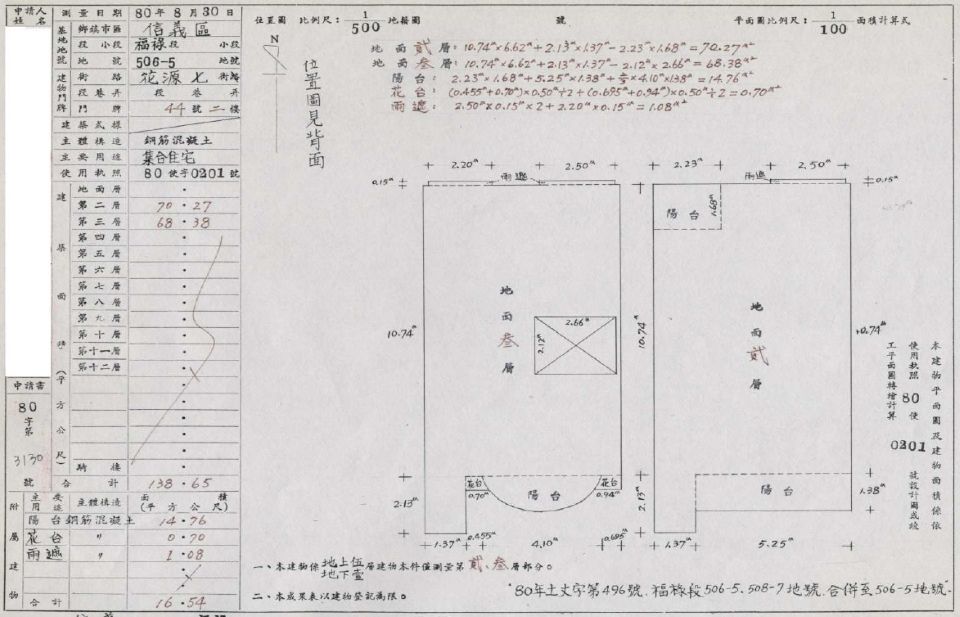 申請人姓名
測量日期 80年8月30日
基地地號 鄉鎮市區 信義區
段小段 福祿段 小段
地號 506-5 地號
建物門牌 街路 花源七街路
段巷弄 段 巷 弄
門牌 44號二樓
建築式樣
主體構造 鋼筋混凝土
主要用途 集合住宅
使用執照 80使字0201號
建築面積(平方公尺)
地面層
第二層 70.27
第三層 68.38
第四層
第五層
第六層
第七層
第八層
第九層
第十層
第十一層
第十二層
騎樓
合計 138.65
申請書
80
字第
3130
號
附屬建物
主要用途 主體構造 面積(平方公尺)
陽台 鋼筋混凝土 14.76
花台 〃 0.70
雨遮 〃 1.08
合計 16.54
位置圖 比例尺：1/500 地籍圖 號 平面圖比例尺：1/100 面積計算式
N
位置圖見背面
地面貳層：10.74×6.62+2.13×1.37-2.23×1.68=70.27M²
地面叁層：10.74×6.62+2.13×1.37-2.12×2.66=68.38M²
陽台：2.23×1.68+5.25×1.38+⅔×4.10×1.38=14.76M²
花台：(0.455+0.70)×0.50÷2+(0.695+0.94)×0.50÷2=0.70M²
雨遮：2.50×0.15×2+2.20×0.15=1.08M²
2.20M 2.50M
0.15M
雨遮
地面叁層
2.66M
2.12M
10.74M
花台
0.70M
陽台
花台
0.94M
2.13M
0.455M
0.695M
1.37M 4.10M
2.23M 2.50M
雨遮
0.15M
陽台
1.68M
地面貳層
10.74M
10.74M
陽台
2.13M
1.38M
1.37M 5.25M
本建物平面圖及建物面積係依
使用執照80使0201號設計圖或竣
工平面圖轉繪計算
一、本建物係地上伍地下壹層建物本件僅測量第貳、叁層部分。
二、本成果表以建物登記為限。
"80年土丈字第496號、福祿段506-5、508-7地號、合併至506-5地號"